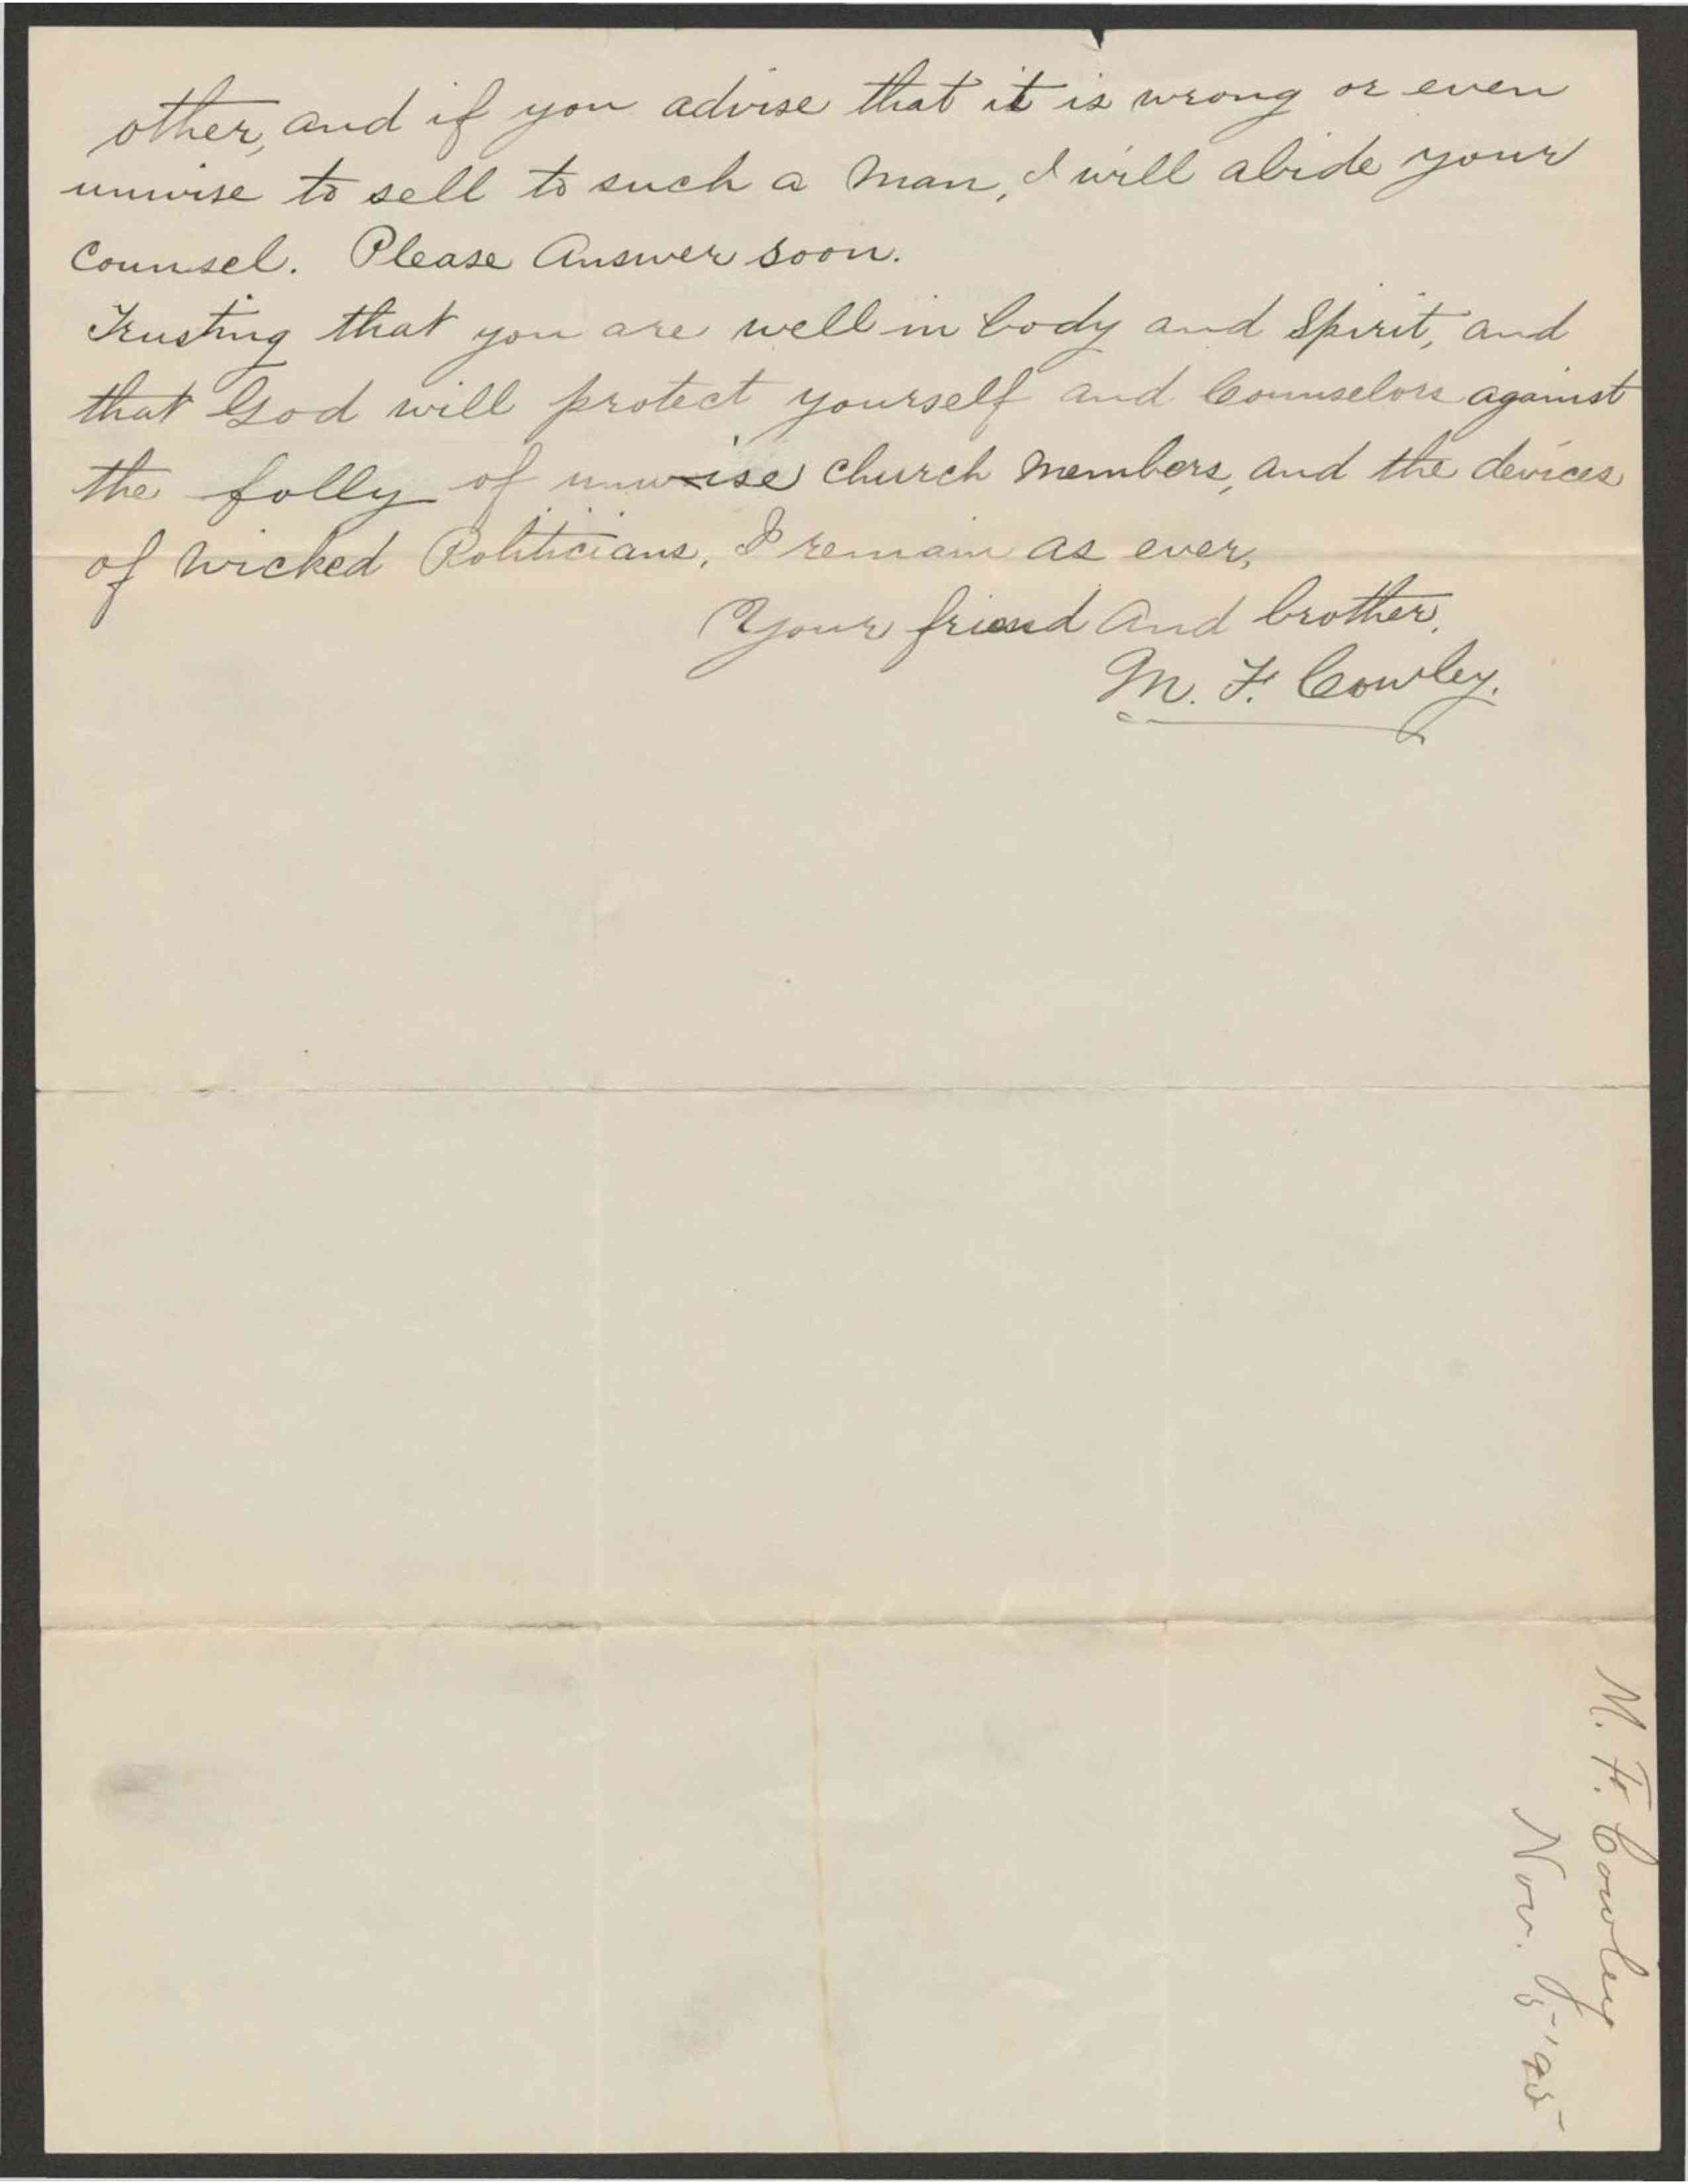 other, and if you advise that it is wrong or even
unwise to sell to such a man, I will abide your
Counsel. Please Answer soon.
Trusting that you are well in body and Spirit, and
that God will protect yourself and Counselors against
the folly of unwise church members, and the devices
of wicked Politicians, I remain as ever,
Your friend and brother,
M. F. Cowley.
M. F. Cowley
Nov. 5 '95